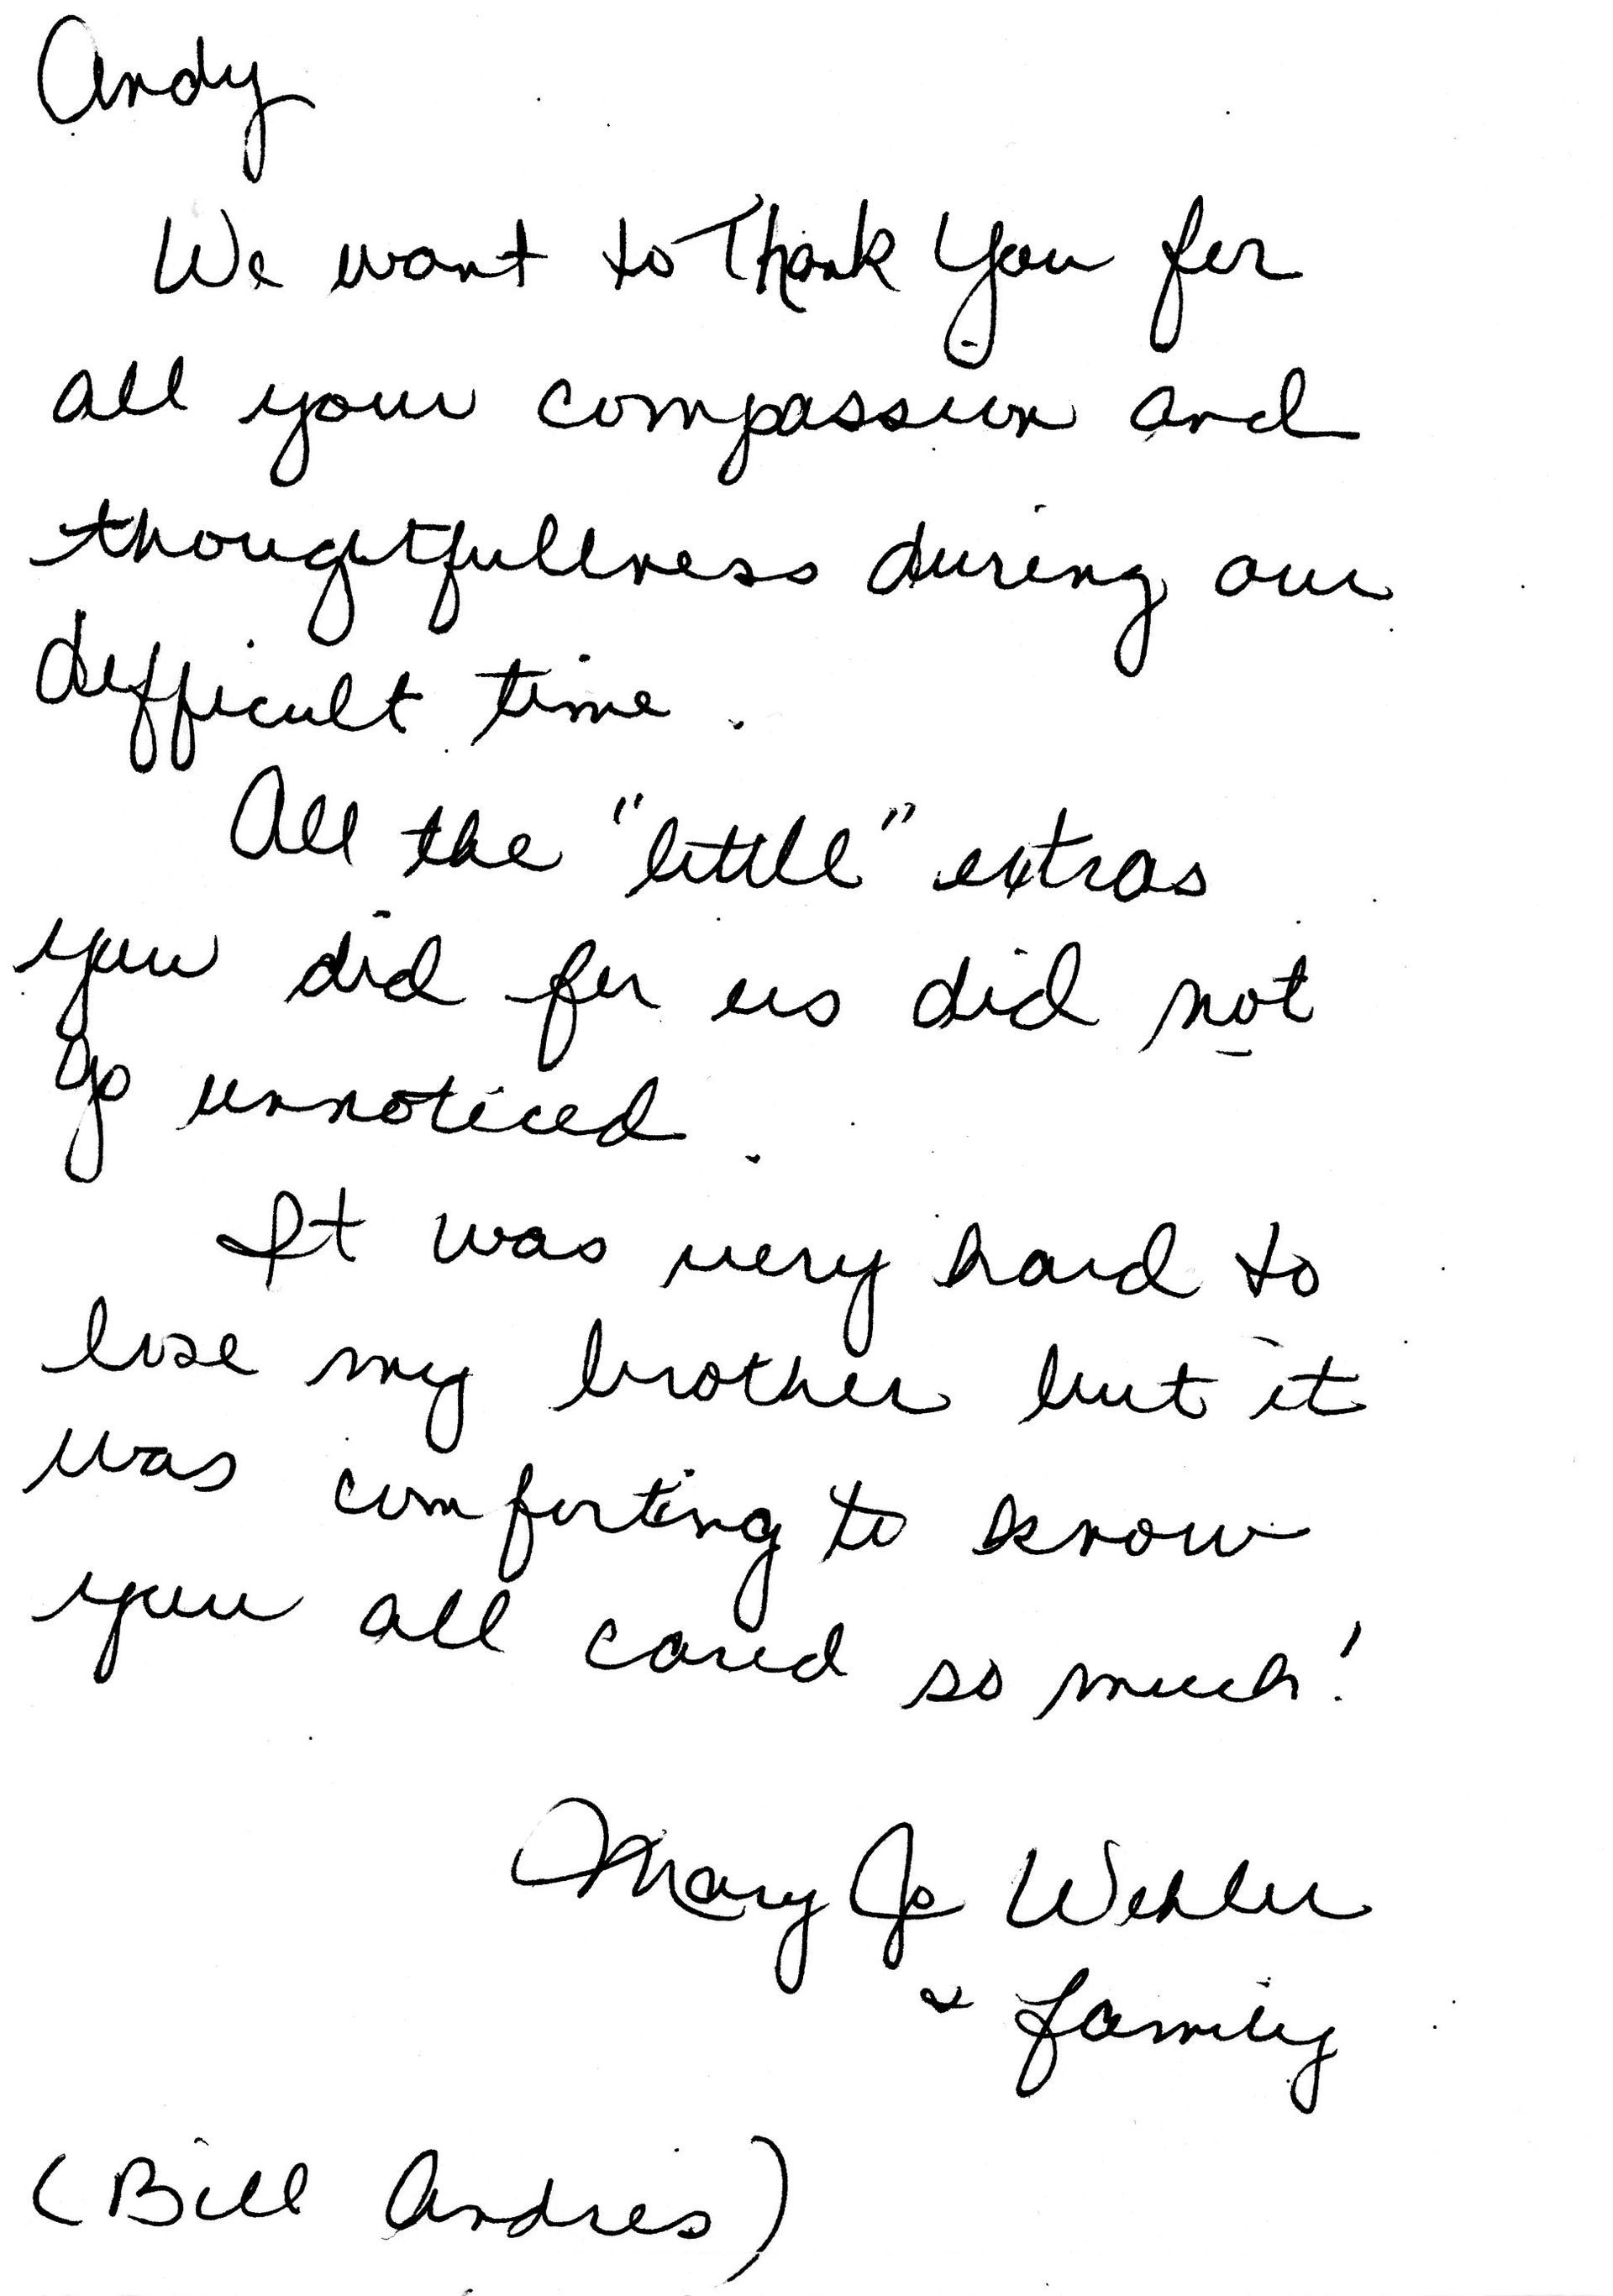 Andy
We want to Thank You for
all your compassion and
thougtfullness during our
difficult time.
All the "little" extras
you did for us did not
go unnoticed.
It was very hard to
lose my brother but it
was comforting to know
you all cared so much!
Mary Jo Wehler
& family
(Bill Andres)